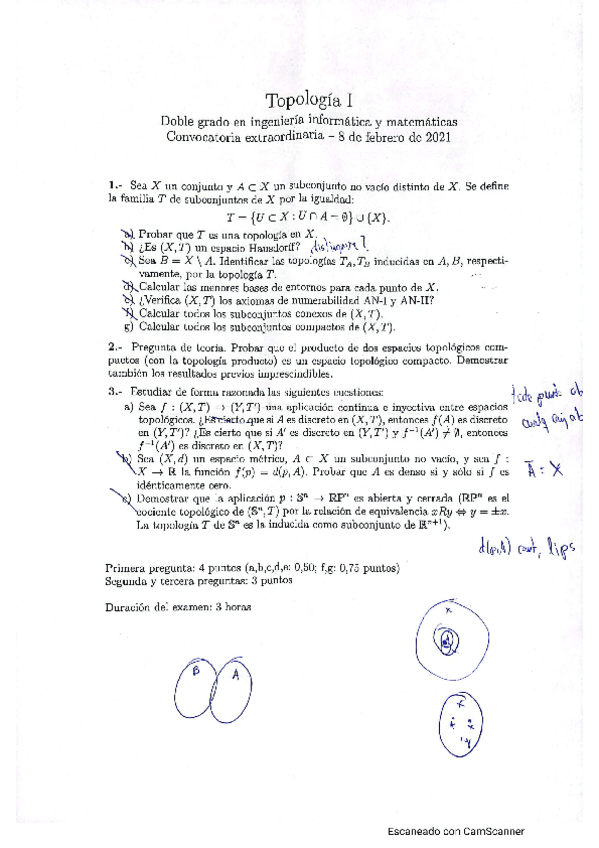 Topología I
Doble grado en ingeniería informática y matemáticas
Convocatoria extraordinaria – 8 de febrero de 2021
1.- Sea X un conjunto y A ⊂ X un subconjunto no vacío distinto de X. Se define
la familia T de subconjuntos de X por la igualdad:
T = {U ⊂ X : U ∩ A = ∅} ∪ {X}.
a) Probar que T es una topología en X.
b) ¿Es (X, T) un espacio Hausdorff?
c) Sea B = X \ A. Identificar las topologías T_A, T_B inducidas en A, B, respecti-
vamente, por la topología T.
d) Calcular las menores bases de entornos para cada punto de X.
e) ¿Verifica (X, T) los axiomas de numerabilidad AN-I y AN-II?
f) Calcular todos los subconjuntos conexos de (X, T).
g) Calcular todos los subconjuntos compactos de (X, T).
2.- Pregunta de teoría. Probar que el producto de dos espacios topológicos com-
pactos (con la topología producto) es un espacio topológico compacto. Demostrar
también los resultados previos imprescindibles.
3.- Estudiar de forma razonada las siguientes cuestiones:
a) Sea f : (X, T) → (Y, T') una aplicación continua e inyectiva entre espacios
topológicos. ¿Es cierto que si A es discreto en (X, T), entonces f(A) es discreto
en (Y, T')? ¿Es cierto que si A' es discreto en (Y, T') y f⁻¹(A') ≠ ∅, entonces
f⁻¹(A') es discreto en (X, T)?
b) Sea (X, d) un espacio métrico, A ⊂ X un subconjunto no vacío, y sea f :
X → ℝ la función f(p) = d(p, A). Probar que A es denso si y sólo si f es
idénticamente cero.
Ā = X
c) Demostrar que la aplicación p : 𝕊ⁿ → ℝPⁿ es abierta y cerrada (ℝPⁿ es el
cociente topológico de (𝕊ⁿ, T) por la relación de equivalencia xRy ⇔ y = ±x.
La topología T de 𝕊ⁿ es la inducida como subconjunto de ℝⁿ⁺¹).
d(p,A) cont, lips
Primera pregunta: 4 puntos (a,b,c,d,e: 0,50; f,g: 0,75 puntos)
Segunda y tercera preguntas: 3 puntos
Duración del examen: 3 horas
X
B A
A
X
Escaneado con CamScanner